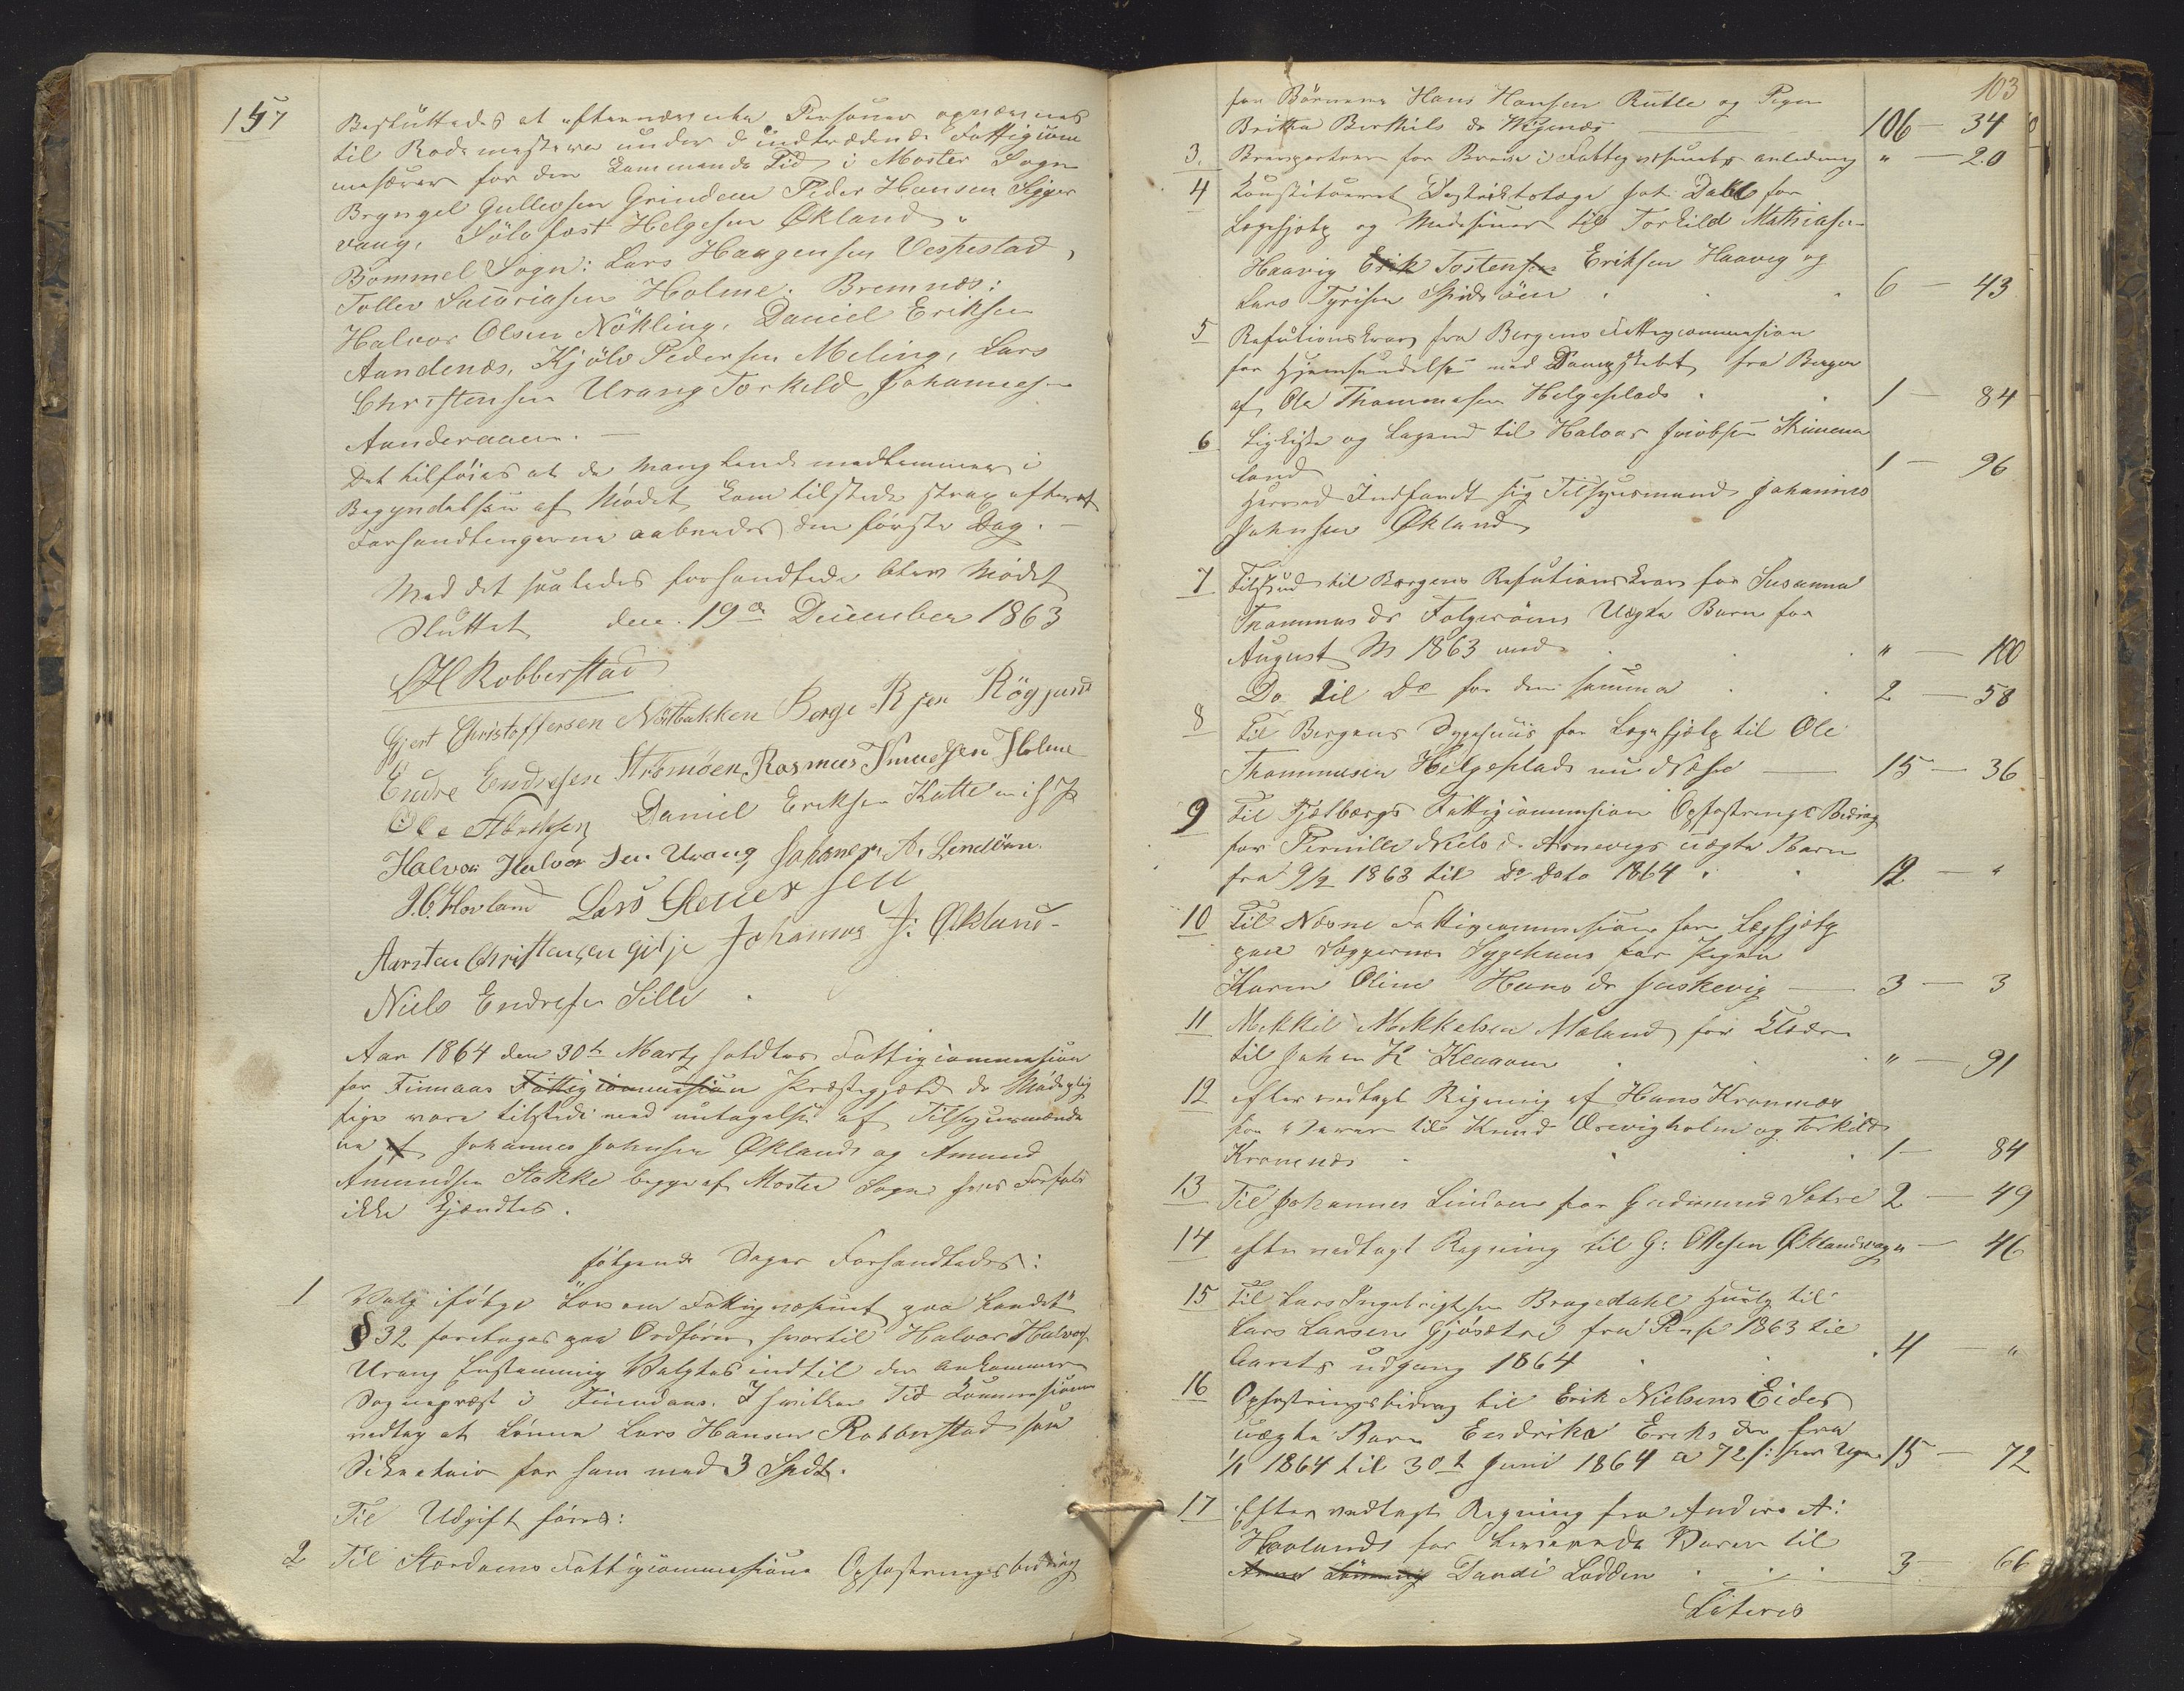 157
Besluttedes at efternævnte Personer opnævnes
til Rodemestere under de indtrædende Fattigcom
misærer for den kommende Tid i Moster Sogn
Bryngel Gullegsen Grindem Peder Hansen Sigger
vaag, Sölvfast Helgesen Økland,
Bömmel Sogn: Lars Haagensen Vespestad,
Tollev Sacariasen Holme. Bremnæs:
Halvor Olsen Nökling, Daniel Eriksen
Aandenæs, Kjölv Pedersen Meling, Lars
Christensen Urang Torkeld Johannes
Aanderaaen. —
Det tilföies at de manglende medlemmer i
Begyndelsen af Mödet kom tilstede strax efterat
Forhandlingerne aabnedes den förste Dag. —
Med det saaledes forhandlede blev Mödet
Sluttet den 19de December 1863
LH Robberstad
Gjert Christoffersen Nötbakken Berge R sen Rögjund
Endre Endresen Strömöen Rasmus Knudsen Holme
Ole Daniel Eriksen Katte
Halvor Halvor sen Urang Johannes A. Lindöen.
J.C. Hovland Lars
Aarsten Christensen Gilje Johannes J: Økland
Niels Endresen Sille
Aar 1864 den 30te Marts holdtes Fattigcommission
for Finnaas Fattigcommission Præstegjeld de Mödeplig
tige vare tilstede med undtagelse af Tilsynsmænde
ne af Johannes Johnsen Økland og Amund
Amundsen Stokke begge af Moster Sogn hvis Forfald
ikke kjendtes.
fölgende Sager Forhandledes:
1 Valg ifölge Lov om Fattigvæsenet paa Landet
§ 32 foretoges paa Ordförer hvortil Halvor Halvors
Urang Enstemmig Valgtes indtil den ankommer
Sognepræst i Finnaas. I hvilken Tid Commissionen
vedtog at lönne Lars Hansen Robberstad som
Sekretair for ham med 3 Spd.
Til Udgift föres:
2 Til Stordöens Fattigcommission Opfostringsbidrag
103
for Börnene Hans Hansen Rutle og Pigen
Britha Berthils dr Vignæs 106 — 34
3. for Breve i Fattigvæsenets anledning " — 20
4 Constitueret Distriktslæge Dahl for
Lægehjelp og Medesiner til Torkild Mathiasen
Haavig Erik Tostensen Eriksen Haaveg og
Lars 6 — 43
5 Refutionskrav fra Bergens Fattigcommission
for Hjemsendelse med Dampskibet fra Bergen
af Ole Thommesen Helgeplads . 1 — 84
6 Ligkiste og til Halvor Jacobsen
land 1 — 96
Herved Indfandt sig Tilsynsmand Johannes
Johnsen Økland
7 Tilskud til Bergens Refutionskrav for Susanna
Thommas dr Folgeröens Uægte Barn for
August M 1863 med " — 100
Do til Do for den samme 2 — 58
8 Til Bergens Sygehuus for Lægehjelp til Ole
Thommesen Helgeplads 15 — 36
9 Til Fjelbergs Fattigcommission Opfostrings Bidrag
for Pernille Niels dr Arnevigs uægte Barn
fra 9/2 1863 til Do Dato 1864 . 12 — "
10 Til Næsne Fattigcommission for Lægehjelp
paa Sygehuus for Pigen
Karen Oline Hans dr 3 — 3
11 Mekkil Mekkelsen Mæland for Klæder
til Johan K Klagam " — 91
12 efter vedtagt Regning af Hans Kromnæs
for Varer til Knud Ørevigholm og Torkild
Kromnæs . 1 — 84
13 Til Johannes Lindöen for Gudmund Sætre 2 — 49
14 efter vedtagt Regning til G: Ottesen Øklandsvaag " — 46
15 Til Lars Ingebrigtsen Bragedahl til
Lars Larsen Gjösætre fra 1863 til
Aarets udgang 1864 4 — "
16 Opfostringsbidrag til Erik Nielsens Eides
uægte Barn Endrike Eriks dtr fra
1/1 1864 til 30te Juni 1864 a 72 s: per Ugen 15 — 72
17 Efter vedtagt Regning fra Anders A:
Havlands for Leverede Varer til
Dardi Lodden . 3 — 66
Lateris